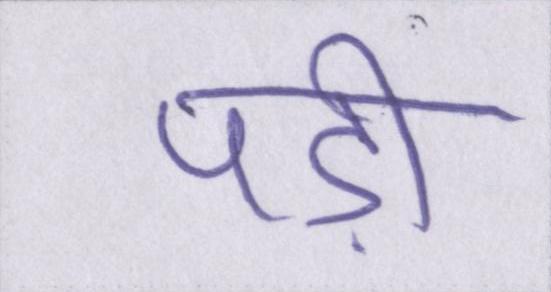 पड़ी